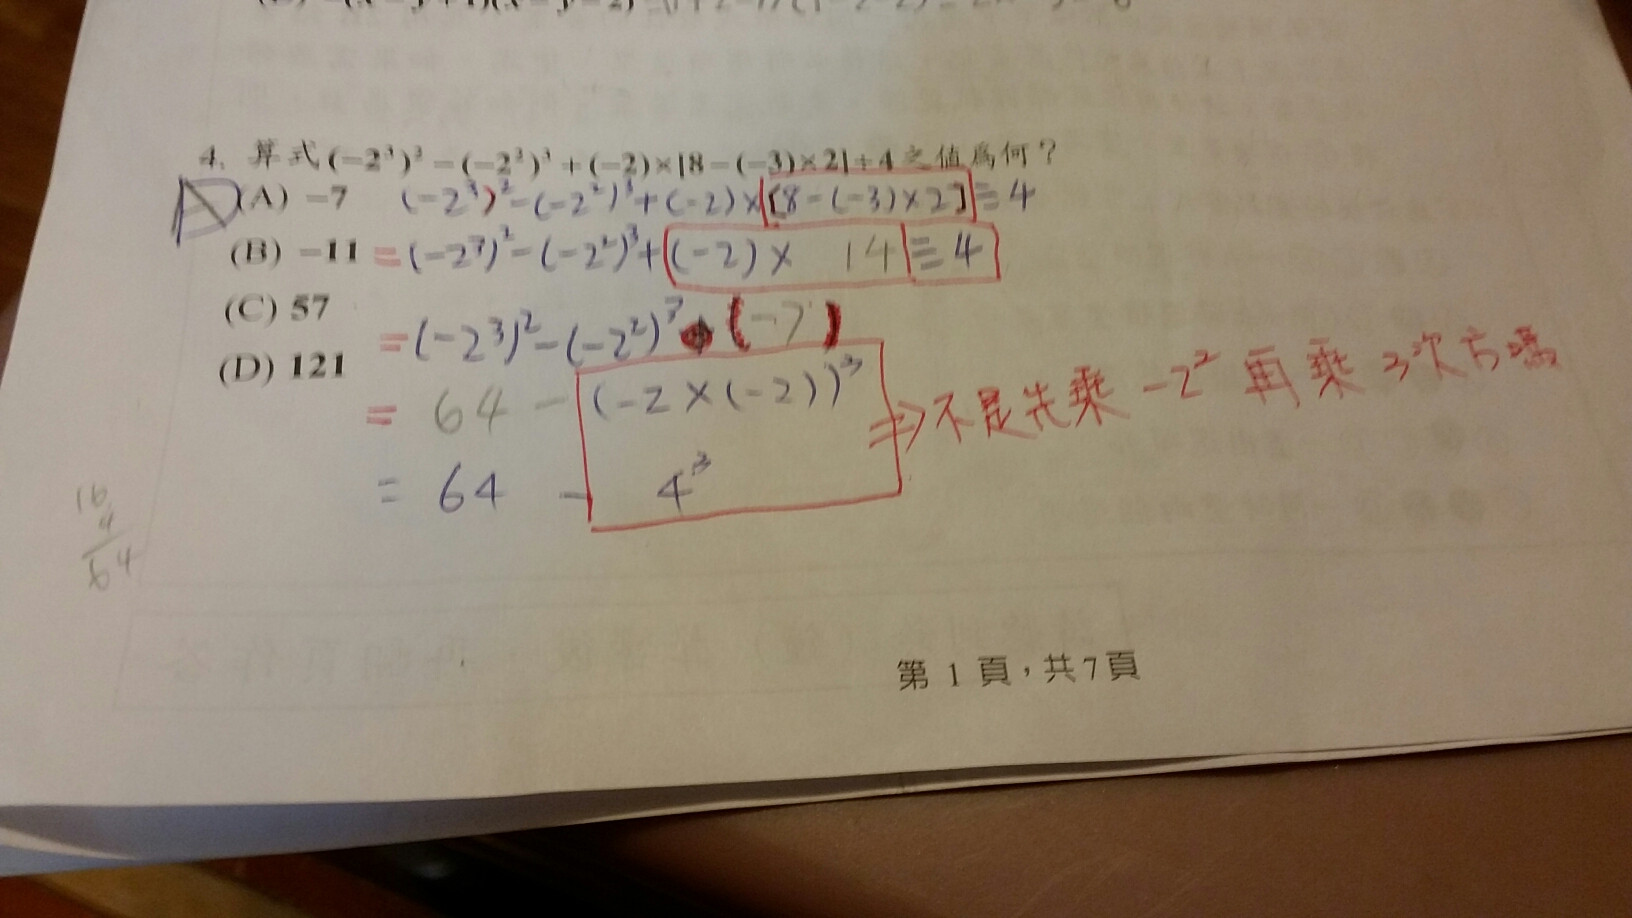 4. 算式(-2³)²-(-2²)³+(-2)×[8-(-3)×2]÷4之值為何?
(A) -7 (-2³)²-(-2²)³+(-2)×[8-(-3)×2]÷4
(B) -11 =(-2³)²-(-2²)³+(-2)× 14÷4
(C) 57
=(-2³)²-(-2²)³+(-7)
(D) 121
= 64-(-2×(-2))³ ⇒不是先乘 -2² 再乘 3次方嗎
= 64 - 4³
16
4
64
第 1 頁,共7頁